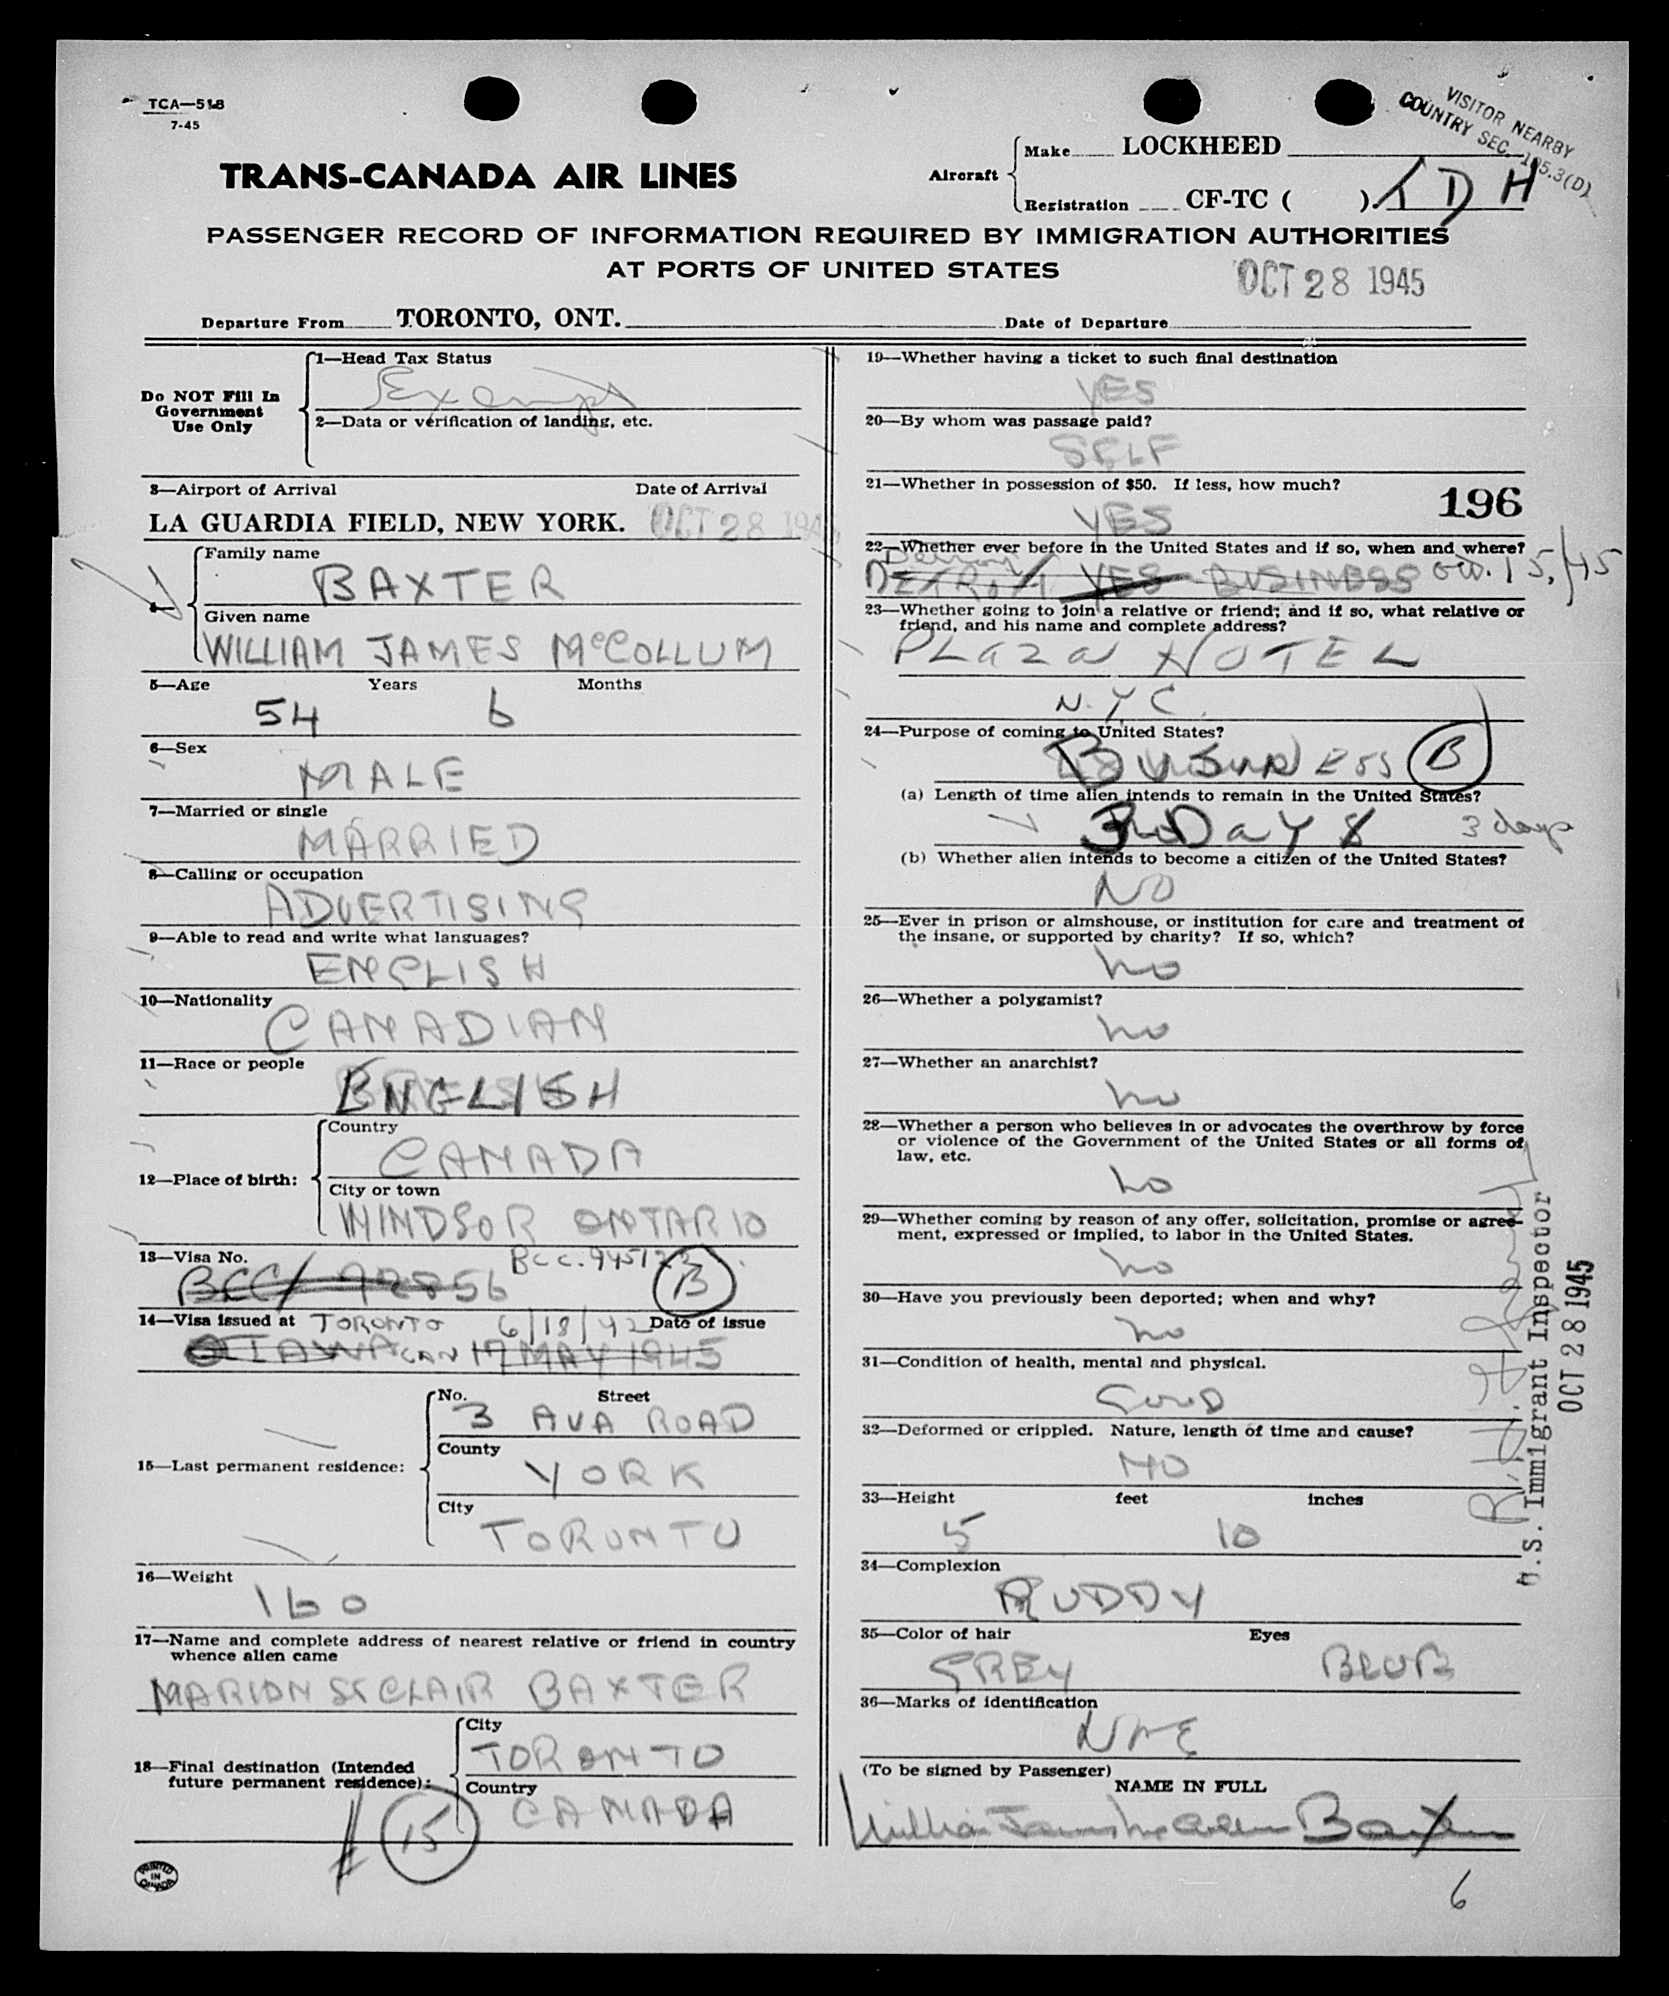 TCA—518
7-45
VISITOR NEARBY
COUNTRY SEC. 195.3(D)
TRANS-CANADA AIR LINES
Aircraft
Make LOCKHEED
Registration CF-TC ( ) TDH
PASSENGER RECORD OF INFORMATION REQUIRED BY IMMIGRATION AUTHORITIES
AT PORTS OF UNITED STATES
OCT 28 1945
Departure From TORONTO, ONT. Date of Departure
Do NOT Fill In
Government
Use Only
1—Head Tax Status
Exempt
2—Data or verification of landing, etc.
3—Airport of Arrival Date of Arrival
LA GUARDIA FIELD, NEW YORK. OCT 28 1945
4—
Family name
BAXTER
Given name
WILLIAM JAMES McCOLLUM
5—Age Years Months
54 6
6—Sex
MALE
7—Married or single
MARRIED
8—Calling or occupation
ADVERTISING
9—Able to read and write what languages?
ENGLISH
10—Nationality
CANADIAN
11—Race or people
ENGLISH
12—Place of birth:
Country
CANADA
City or town
WINDSOR ONTARIO
13—Visa No. BCC.
BCC/ 92856 B
14—Visa issued at TORONTO 6/18/42 Date of issue
OTTAWA CAN 17 MAY 1945
15—Last permanent residence:
No. Street
3 AVA ROAD
County
YORK
City
TORONTO
16—Weight
160
17—Name and complete address of nearest relative or friend in country
whence alien came
MARION St CLAIR BAXTER
18—Final destination (Intended
future permanent residence):
City
TORONTO
Country
CANADA
15
PRINTED
IN
CANADA
19—Whether having a ticket to such final destination
YES
20—By whom was passage paid?
SELF
21—Whether in possession of $50. If less, how much?
196
YES
22—Whether ever before in the United States and if so, when and where?
Detroit
DETROIT YES BUSINESS Oct. 15, /45
23—Whether going to join a relative or friend; and if so, what relative or
friend, and his name and complete address?
PLAZA HOTEL
N.Y.C.
24—Purpose of coming to United States?
BUSINESS B
(a) Length of time alien intends to remain in the United States?
3 DAYS 3 days
(b) Whether alien intends to become a citizen of the United States?
NO
25—Ever in prison or almshouse, or institution for care and treatment of
the insane, or supported by charity? If so, which?
no
26—Whether a polygamist?
no
27—Whether an anarchist?
no
28—Whether a person who believes in or advocates the overthrow by force
or violence of the Government of the United States or all forms of
law, etc.
no
29—Whether coming by reason of any offer, solicitation, promise or agree-
ment, expressed or implied, to labor in the United States.
no
30—Have you previously been deported; when and why?
no
31—Condition of health, mental and physical.
GOOD
32—Deformed or crippled. Nature, length of time and cause?
NO
33—Height feet inches
5 10
34—Complexion
RUDDY
35—Color of hair Eyes
GREY BLUE
36—Marks of identification
(To be signed by Passenger)
NAME IN FULL
William James McCollum Baxter
6
U.S. Immigrant Inspector
OCT 28 1945